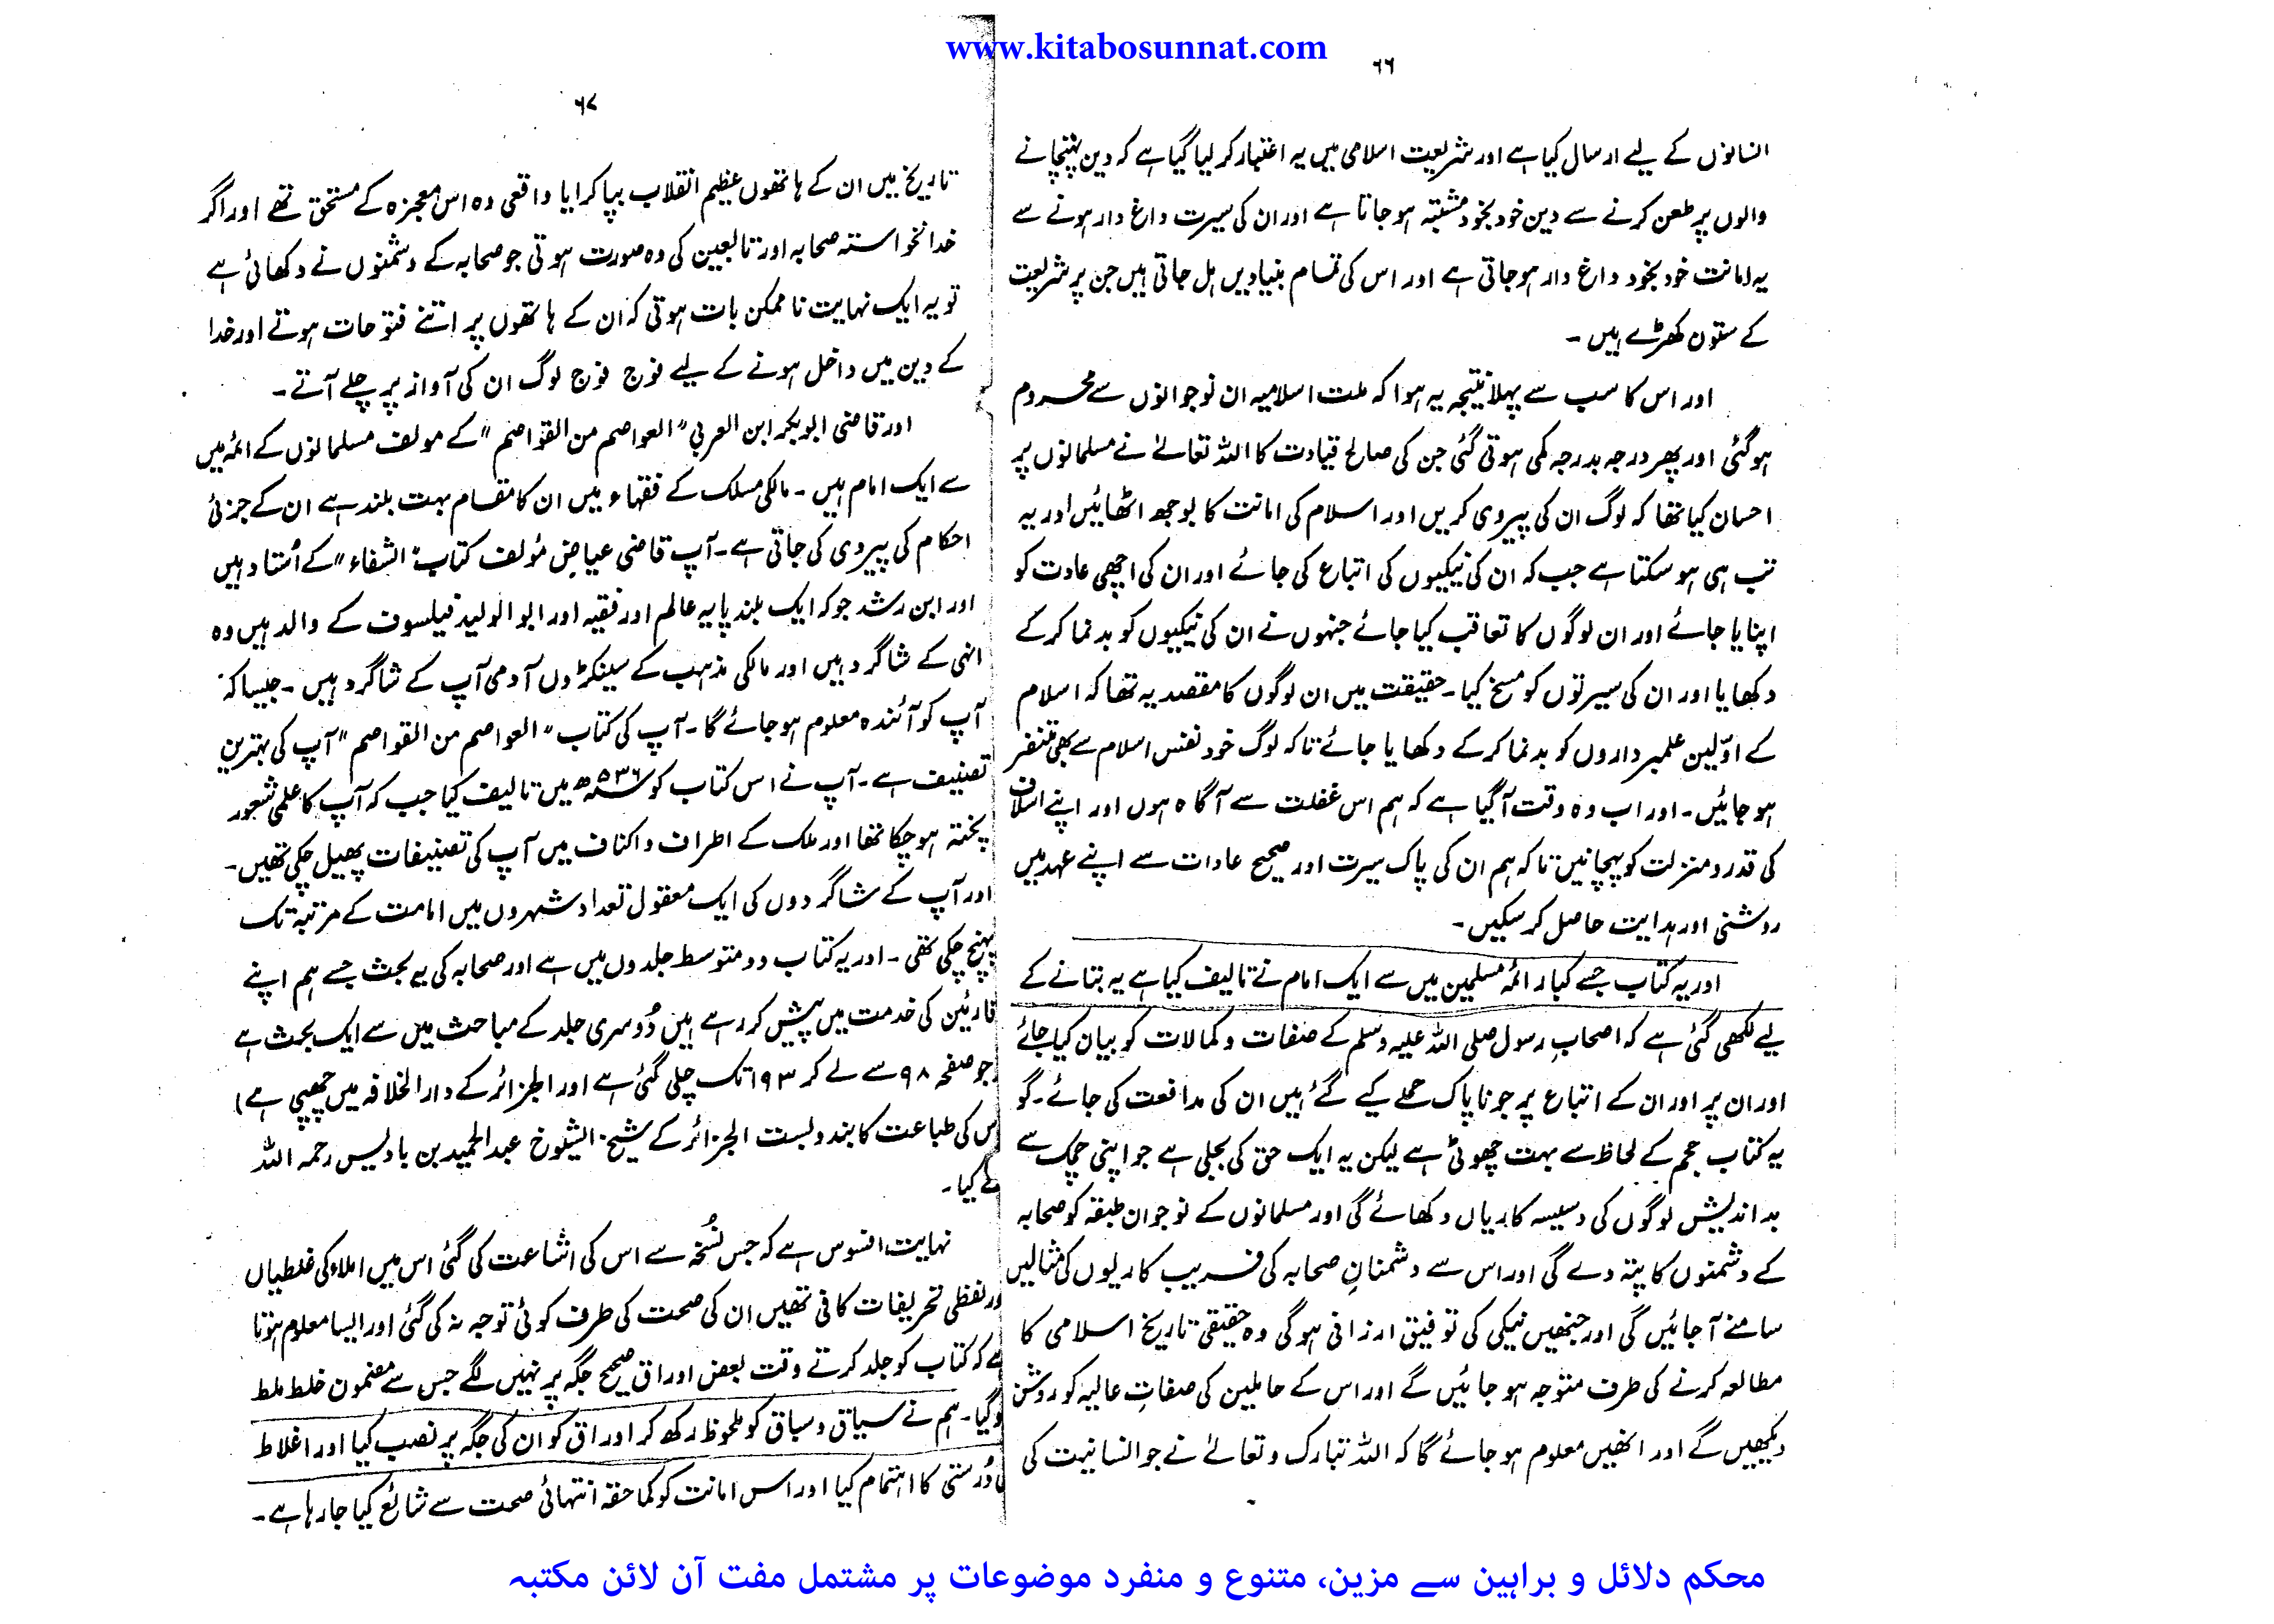 www.kitabosunnat.com
۶۶
انسانوں کے لیے ارسال کیا ہے اور شریعت اسلامی میں یہ اعتبار کر لیا گیا ہے کہ دین پہنچانے
والوں پر طعن کرنے سے دین خود بخود مشتبہ ہو جاتا ہے اور ان کی سیرت داغ دار ہونے سے
یہ امانت خود بخود داغ دار ہو جاتی ہے اور اس کی تمام بنیادیں ہل جاتی ہیں جن پر شریعت
کے ستون کھڑے ہیں ۔
اور اس کا سب سے پہلا نتیجہ یہ ہوا کہ ملت اسلامیہ ان نوجوانوں سے محروم
ہو گئی اور پھر درجہ بدرجہ کمی ہوتی گئی جن کی صالح قیادت کا اللہ تعالےٰ نے مسلمانوں پر
احسان کیا تھا کہ لوگ ان کی پیروی کریں اور اسلام کی امانت کا بوجھ اٹھائیں اور یہ
تب ہی ہو سکتا ہے جب کہ ان کی نیکیوں کی اتباع کی جائے اور ان کی اچھی عادت کو
اپنایا جائے اور ان لوگوں کا تعاقب کیا جائے جنہوں نے ان کی نیکیوں کو بدنما کر کے
دکھایا اور ان کی سیرتوں کو مسخ کیا ۔ حقیقت میں ان لوگوں کا مقصد یہ تھا کہ اسلام
کے اوّلین علمبرداروں کو بدنما کر کے دکھایا جائے تاکہ لوگ خود نفس اسلام سے بھی متنفر
ہو جائیں ۔ اور اب وہ وقت آگیا ہے کہ ہم اس غفلت سے آگاہ ہوں اور اپنے اسلاف
کی قدر و منزلت کو پہچانیں تاکہ ہم ان کی پاک سیرت اور صحیح عادات سے اپنے عہد میں
روشنی اور ہدایت حاصل کر سکیں ۔
اور یہ کتاب جسے کبار ائمہ مسلمین میں سے ایک امام نے تالیف کیا ہے یہ بتانے کے
لیے لکھی گئی ہے کہ اصحابِ رسول صلی اللہ علیہ وسلم کے صفات و کمالات کو بیان کیا جائے
اور ان پر اور ان کے اتباع پر جو ناپاک حملے کیے گئے ہیں ان کی مدافعت کی جائے ۔ گو
یہ کتاب حجم کے لحاظ سے بہت چھوٹی ہے لیکن یہ ایک حق کی بجلی ہے جو اپنی چمک سے
بد اندیش لوگوں کی دسیسہ کاریاں دکھائے گی اور مسلمانوں کے نوجوان طبقہ کو صحابہ
کے دشمنوں کا پتہ دے گی اور اس سے دشمنانِ صحابہ کی فریب کاریوں کی مثالیں
سامنے آجائیں گی اور جنھیں نیکی کی توفیق ارزانی ہو گی وہ حقیقی تاریخ اسلامی کا
مطالعہ کرنے کی طرف متوجہ ہو جائیں گے اور اس کے حاملین کی صفاتِ عالیہ کو روشن
دیکھیں گے اور انھیں معلوم ہو جائے گا کہ اللہ تبارک و تعالےٰ نے جو انسانیت کی
۶۷
تاریخ میں ان کے ہاتھوں عظیم انقلاب بپا کرایا واقعی وہ اس معجزہ کے مستحق تھے اور اگر
خدانخواستہ صحابہ اور تابعین کی وہ صورت ہوتی جو صحابہ کے دشمنوں نے دکھائی ہے
تو یہ ایک نہایت ناممکن بات ہوتی کہ ان کے ہاتھوں پر اتنے فتوحات ہوتے اور خدا
کے دین میں داخل ہونے کے لیے فوج فوج لوگ ان کی آواز پر چلے آتے ۔
اور قاضی ابوبکر ابن العربی "العواصم من القواصم" کے مولف مسلمانوں کے ائمہ میں
سے ایک امام ہیں ۔ مالکی مسلک کے فقہاء میں ان کا مقام بہت بلند ہے ان کے جزئی
احکام کی پیروی کی جاتی ہے ۔ آپ قاضی عیاض مؤلف کتاب "الشفاء" کے اُستاد ہیں
اور ابن رشد جو کہ ایک بلند پایہ عالم اور فقیہ اور ابو الولید فیلسوف کے والد ہیں وہ
انہی کے شاگرد ہیں اور مالکی مذہب کے سینکڑوں آدمی آپ کے شاگرد ہیں ۔ جیسا کہ
آپ کو آئندہ معلوم ہو جائے گا ۔ آپ کی کتاب "العواصم من القواصم" آپ کی بہترین
تصنیف ہے ۔ آپ نے اس کتاب کو ۵۳۶ھ میں تالیف کیا جب کہ آپ کا علمی شعور
پختہ ہو چکا تھا اور ملک کے اطراف و اکناف میں آپ کی تصنیفات پھیل چکی تھیں ۔
اور آپ کے شاگردوں کی ایک معقول تعداد شہروں میں امامت کے مرتبہ تک
پہنچ چکی تھی ۔ اور یہ کتاب دو متوسط جلدوں میں ہے اور صحابہ کی یہ بحث جسے ہم اپنے
قارئین کی خدمت میں پیش کر رہے ہیں دُوسری جلد کے مباحث میں سے ایک بحث ہے
جو صفحہ ۹۸ سے لے کر ۱۹۳ تک چلی گئی ہے اور الجزائر کے دار الخلافہ میں چھپی ہے)
س کی طباعت کا بندوبست الجزائر کے شیخ الشیوخ عبد الحمید بن بادلیس رحمہ اللہ
نے کیا ۔
نہایت افسوس ہے کہ جس نُسخہ سے اس کی اشاعت کی گئی اس میں املاء کی غلطیاں
ور لفظی تحریفات کافی تھیں ان کی صحت کی طرف کوئی توجہ نہ کی گئی اور ایسا معلوم ہوتا
ہے کہ کتاب کو جلد کرتے وقت بعض اوراق صحیح جگہ پر نہیں لگے جس سے مضمون خلط ملط
و گیا ۔ ہم نے سیاق و سباق کو ملحوظ رکھ کر اوراق کو ان کی جگہ پر نصب کیا اور اغلاط
دُرستی کا اہتمام کیا اور اس امانت کو کما حقہ انتہائی صحت سے شائع کیا جا رہا ہے ۔
محکم دلائل و براہین سے مزین، متنوع و منفرد موضوعات پر مشتمل مفت آن لائن مکتبہ